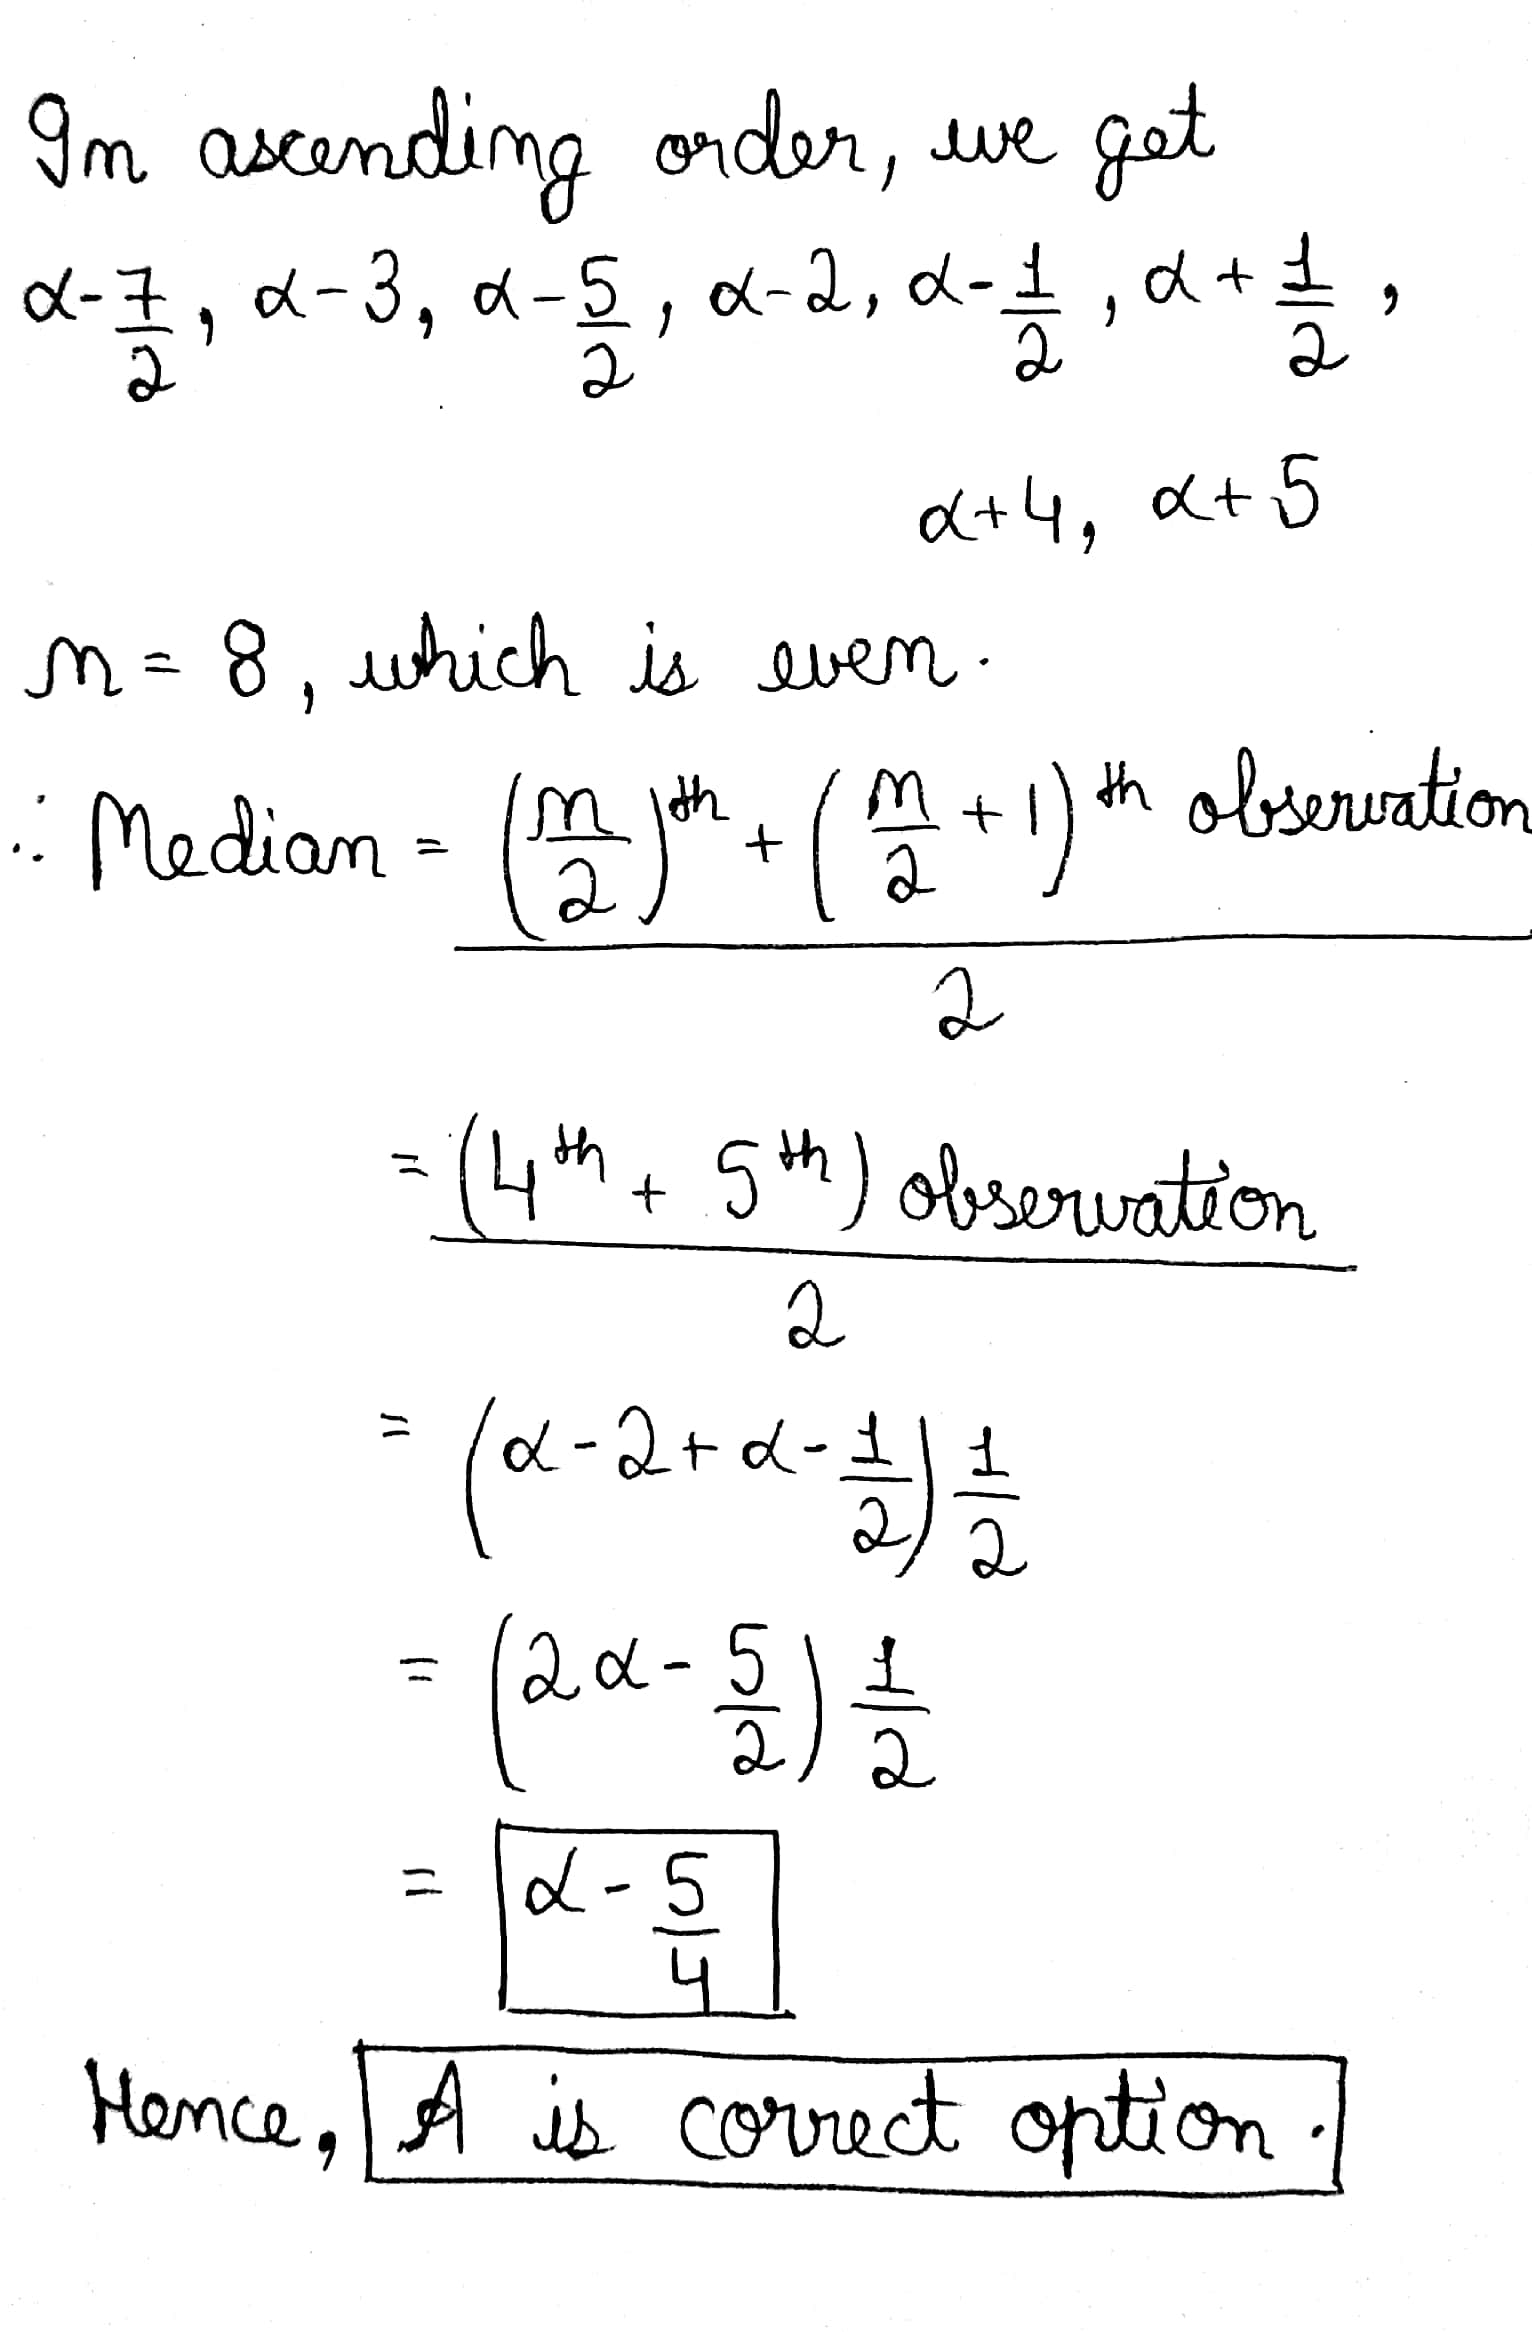 In ascending order, we get
α-7/2, α-3, α-5/2, α-2, α-1/2, α+1/2,
α+4, α+5
n = 8, which is even.
∴ Median = ((n/2)th + (n/2 + 1)th observation)/2
= ((4th + 5th) observation)/2
= (α-2+α-1/2) 1/2
= (2α-5/2) 1/2
= α-5/4
Hence, A is correct option.